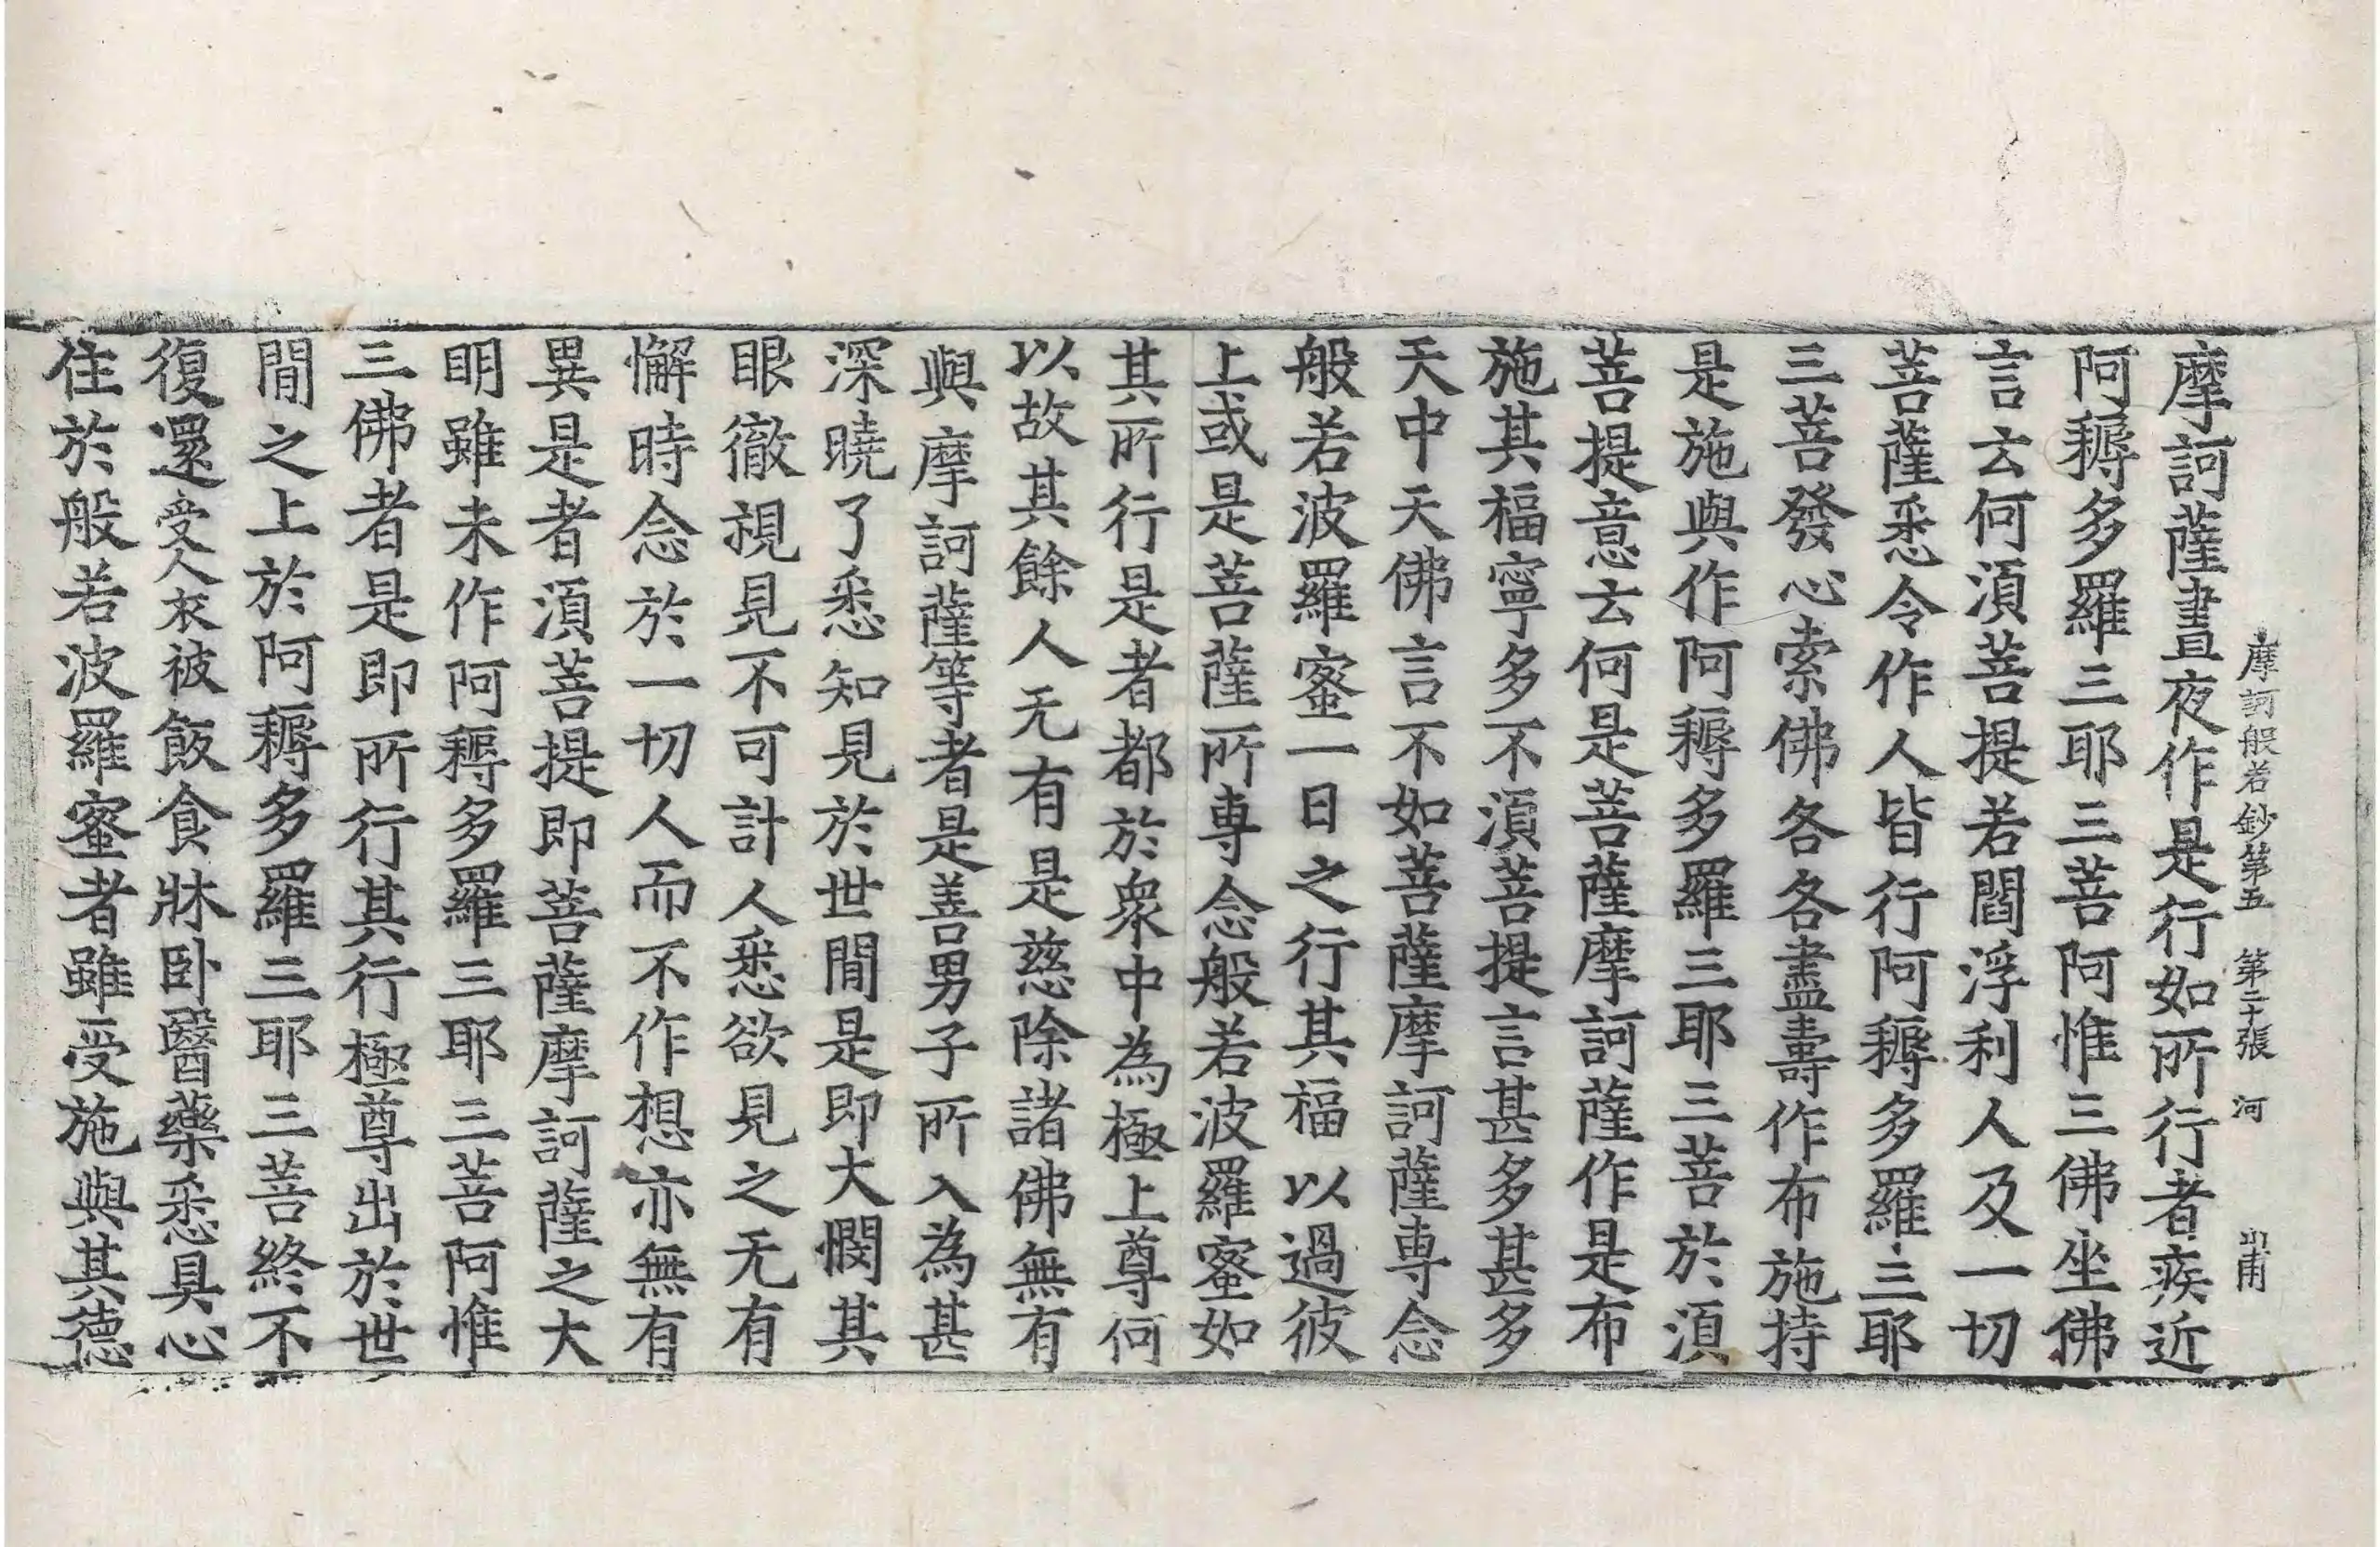 摩訶般若鈔第五 第二十張 河
摩訶薩晝夜作是行如所行者疾近
阿耨多羅三耶三菩阿惟三佛坐佛
言云何須菩提若閻浮利人及一切
菩薩悉令作人皆行阿耨多羅三耶
三菩發心索佛各各盡壽作布施持
是施與作阿耨多羅三耶三菩於須
菩提意云何是菩薩摩訶薩作是布
施其福寧多不須菩提言甚多甚多
天中天佛言不如菩薩摩訶薩専念
般若波羅蜜一日之行其福以過彼
上或是菩薩所専念般若波羅蜜如
其所行是者都於衆中為極上尊何
以故其餘人无有是慈除諸佛無有
與摩訶薩等者是善男子所入為甚
深曉了悉知見於世間是即大憫其
眼徹視見不可計人悉欲見之无有
懈時念於一切人而不作想亦無有
異是者須菩提即菩薩摩訶薩之大
明雖未作阿耨多羅三耶三菩阿惟
三佛者是即所行其行極尊出於世
間之上於阿耨多羅三耶三菩終不
復還受人衣被飯食牀卧醫藥悉具心
住於般若波羅蜜者雖受施與其德